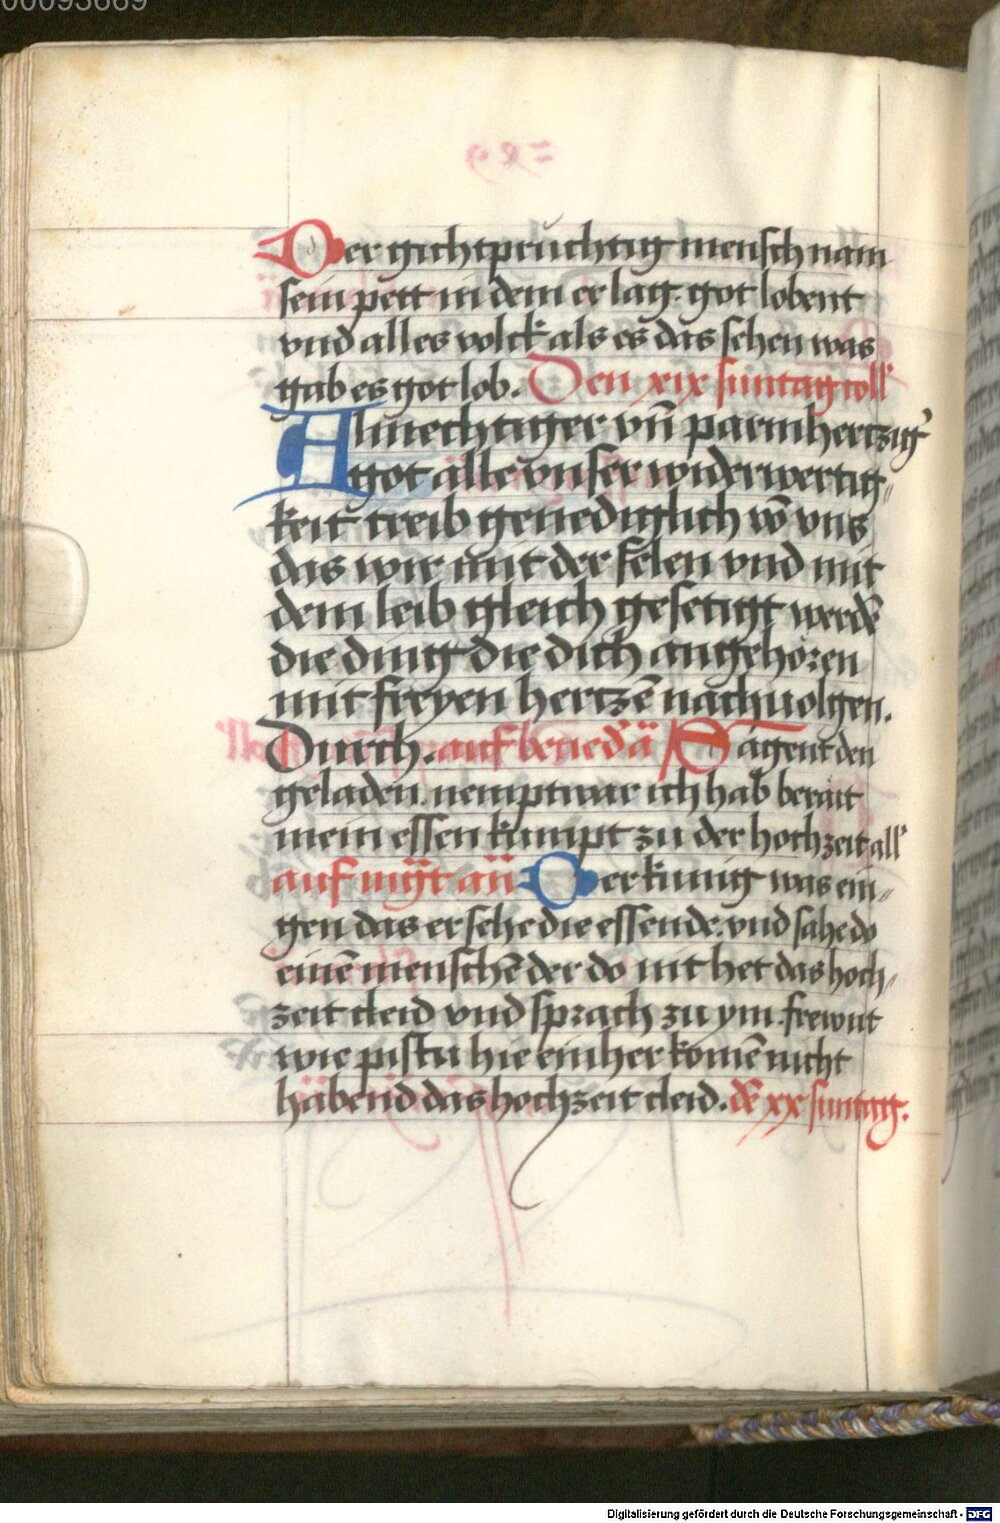 00093669
Der gichtpruchtig mensch nam
sein pett in dem er lag. got lobent
vnd alles volck als es das sehen was
gab es got lob. Den xix suntag coll
Almechtiger vn̄ parmhertzig̾
got alle vnser widerwertig„
keit treib genediglich vō vns
das wir mit der selen vnd mit
dem leib gleich gesetigt werdē
die ding die dich angehoren
mit freyen hertzē nachuolgen.
Durch. auf bened̄ ā Sagent den
geladen. nempt war ich hab berait
mein essen kumpt zu der hochzeit all
auf mgt̄ an̄ Der kunig was ein„
gen das er sehe die essende. vnd sahe do
einē menschē der do nit het das hoch„
zeit cleid vnd sprach zu ym. frewnt
wie pistu hie einher komē nicht
habend das hochzeit cleid. dē xx suntag.
Digitalisierung gefördert durch die Deutsche Forschungsgemeinschaft - DFG